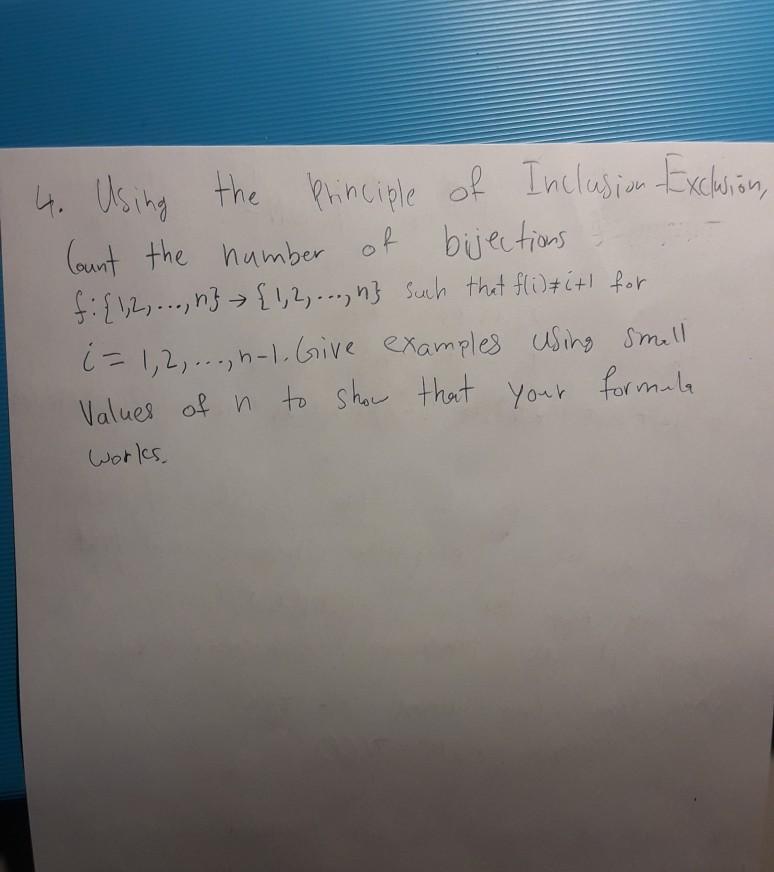 4. Using the Principle of Inclusion-Exclusion,
Count the number of bijections
f:{1,2,...,n} → {1,2,...,n} such that f(i)≠i+1 for
i = 1,2,...,n-1. Give examples using small
Values of n to show that your formula
works.